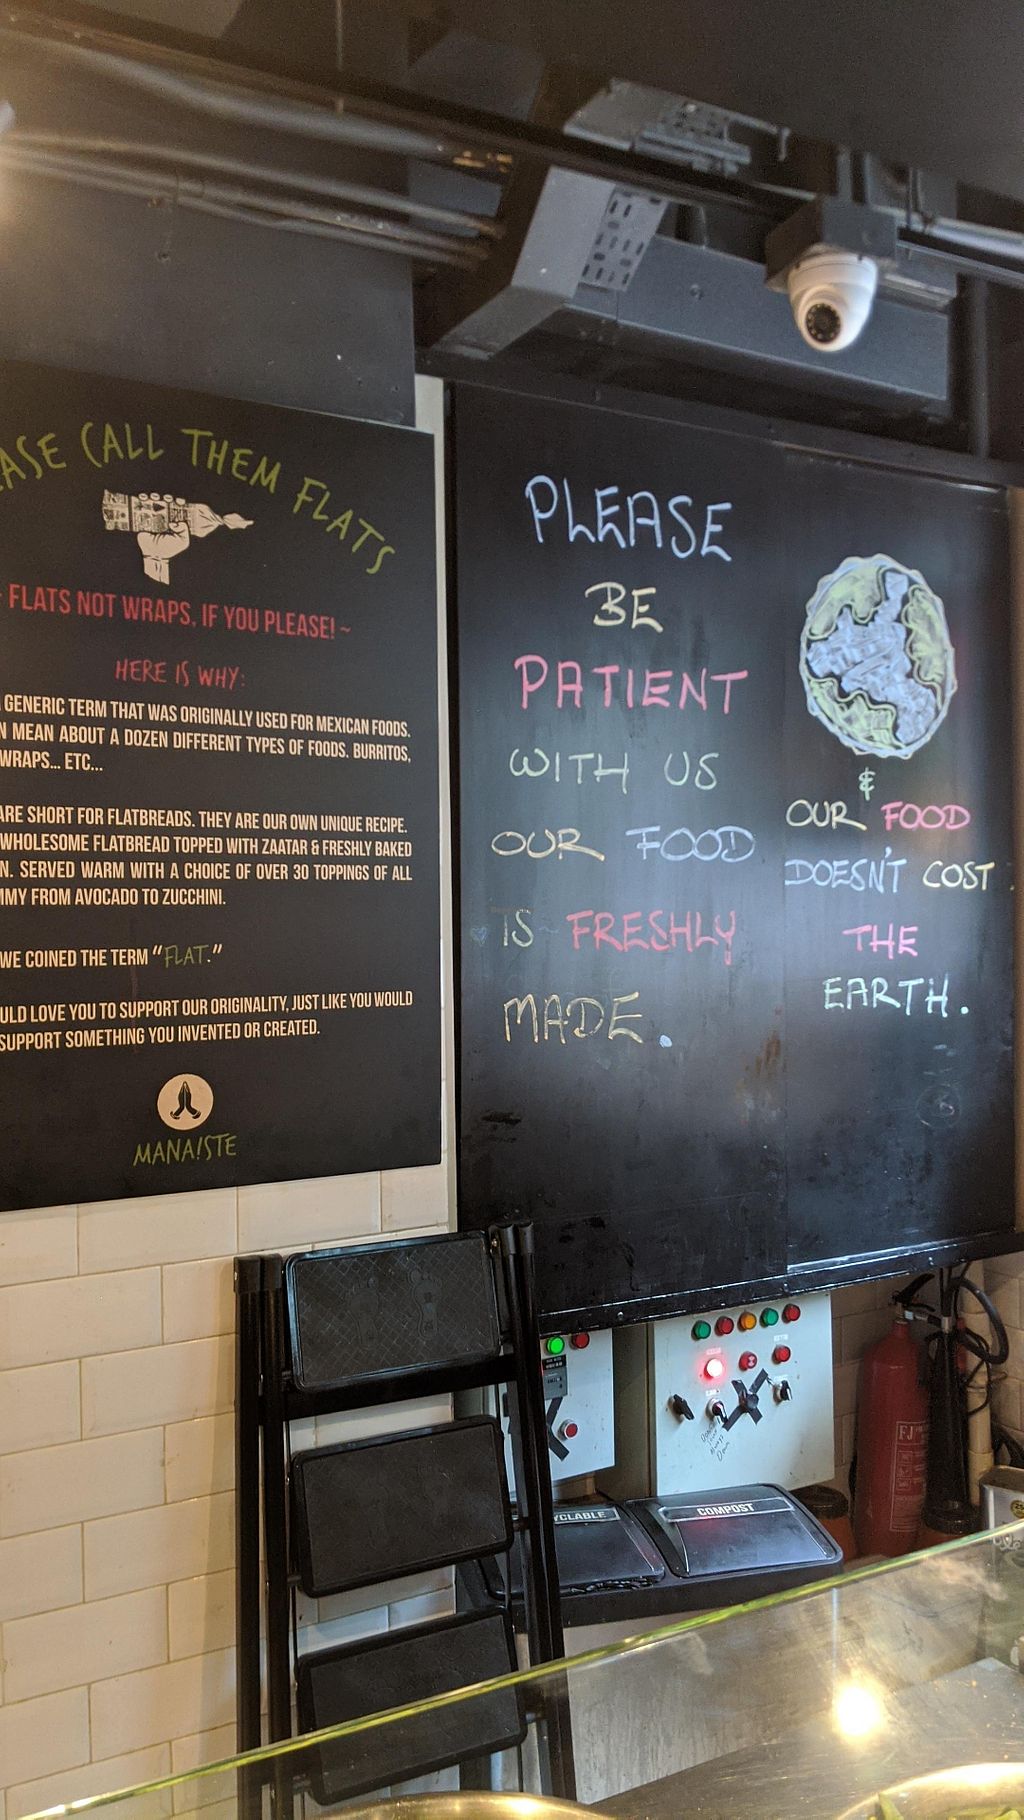 CALL THEM FLATS
FLATS NOT WRAPS, IF YOU PLEASE! ~
HERE IS WHY:
GENERIC TERM THAT WAS ORIGINALLY USED FOR MEXICAN FOODS.
MEAN ABOUT A DOZEN DIFFERENT TYPES OF FOODS. BURRITOS,
WRAPS... ETC...
ARE SHORT FOR FLATBREADS. THEY ARE OUR OWN UNIQUE RECIPE.
WHOLESOME FLATBREAD TOPPED WITH ZAATAR & FRESHLY BAKED
N. SERVED WARM WITH A CHOICE OF OVER 30 TOPPINGS OF ALL
MMY FROM AVOCADO TO ZUCCHINI.
WE COINED THE TERM "FLAT."
ULD LOVE YOU TO SUPPORT OUR ORIGINALITY, JUST LIKE YOU WOULD
SUPPORT SOMETHING YOU INVENTED OR CREATED.
MANA!STE
PLEASE
BE
PATIENT
WITH US
OUR FOOD
IS FRESHLY
MADE.
&
OUR FOOD
DOESN'T COST
THE
EARTH.
YCLABLE
COMPOST